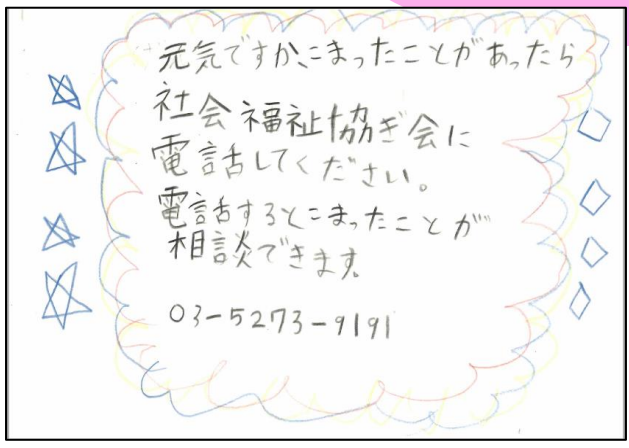 元気ですか、こまったことがあったら
社会福祉協ぎ会に
電話してください。
電話するとこまったことが
相談できます。
03-5273-9191